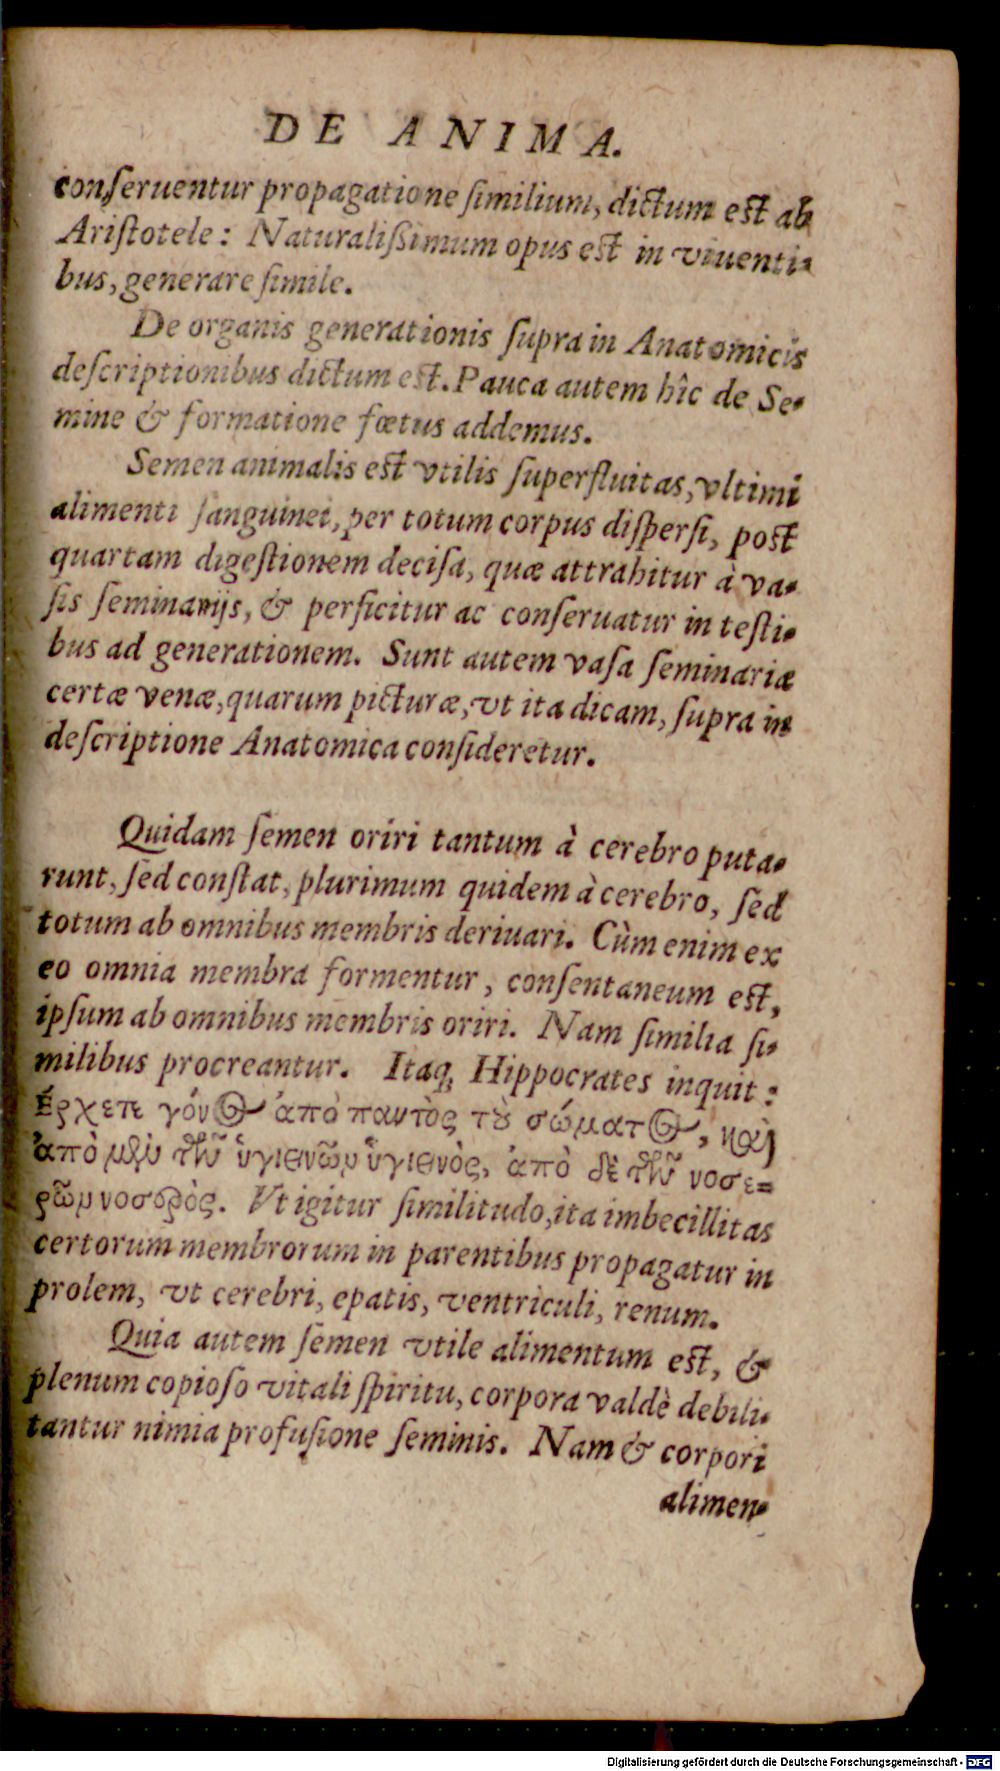 DE ANIMA.
conſeruentur propagatione ſimilium, dictum eſt ab
Ariſtotele: Naturaliſsimum opus eſt in viuenti-
bus, generare ſimile.
De organis generationis ſupra in Anatomicis
deſcriptionibus dictum eſt. Pauca autem hîc de Se-
mine & formatione fœtus addemus.
Semen animalis eſt vtilis ſuperfluitas, vltimi
alimenti ſanguinei, per totum corpus diſperſi, poſt
quartam digeſtionem deciſa, quæ attrahitur à va-
ſis ſeminarijs, & perficitur ac conſeruatur in teſti-
bus ad generationem. Sunt autem vaſa ſeminaria
certæ venæ, quarum picturæ, vt ita dicam, ſupra in
deſcriptione Anatomica conſideretur.
Quidam ſemen oriri tantum à cerebro puta-
runt, ſed conſtat, plurimum quidem à cerebro, ſed
totum ab omnibus membris deriuari. Cùm enim ex
eo omnia membra formentur, conſentaneum eſt,
ipſum ab omnibus membris oriri. Nam ſimilia ſi-
milibus procreantur. Itaq; Hippocrates inquit:
Ἔρχετε γόνος ἀπὸ παντὸς τοῦ σώματος, καὶ
ἀπὸ μὲν τῶν ὑγιεινῶν ὑγιεινὸς, ἀπὸ δὲ τῶν νοσε-
ρῶν νοσερὸς. Vt igitur ſimilitudo, ita imbecillitas
certorum membrorum in parentibus propagatur in
prolem, vt cerebri, epatis, ventriculi, renum.
Quia autem ſemen vtile alimentum eſt, &
plenum copioſo vitali ſpiritu, corpora valdè debili-
tantur nimia profuſione ſeminis. Nam & corpori
alimen-
Digitalisierung gefördert durch die Deutsche Forschungsgemeinschaft - DFG